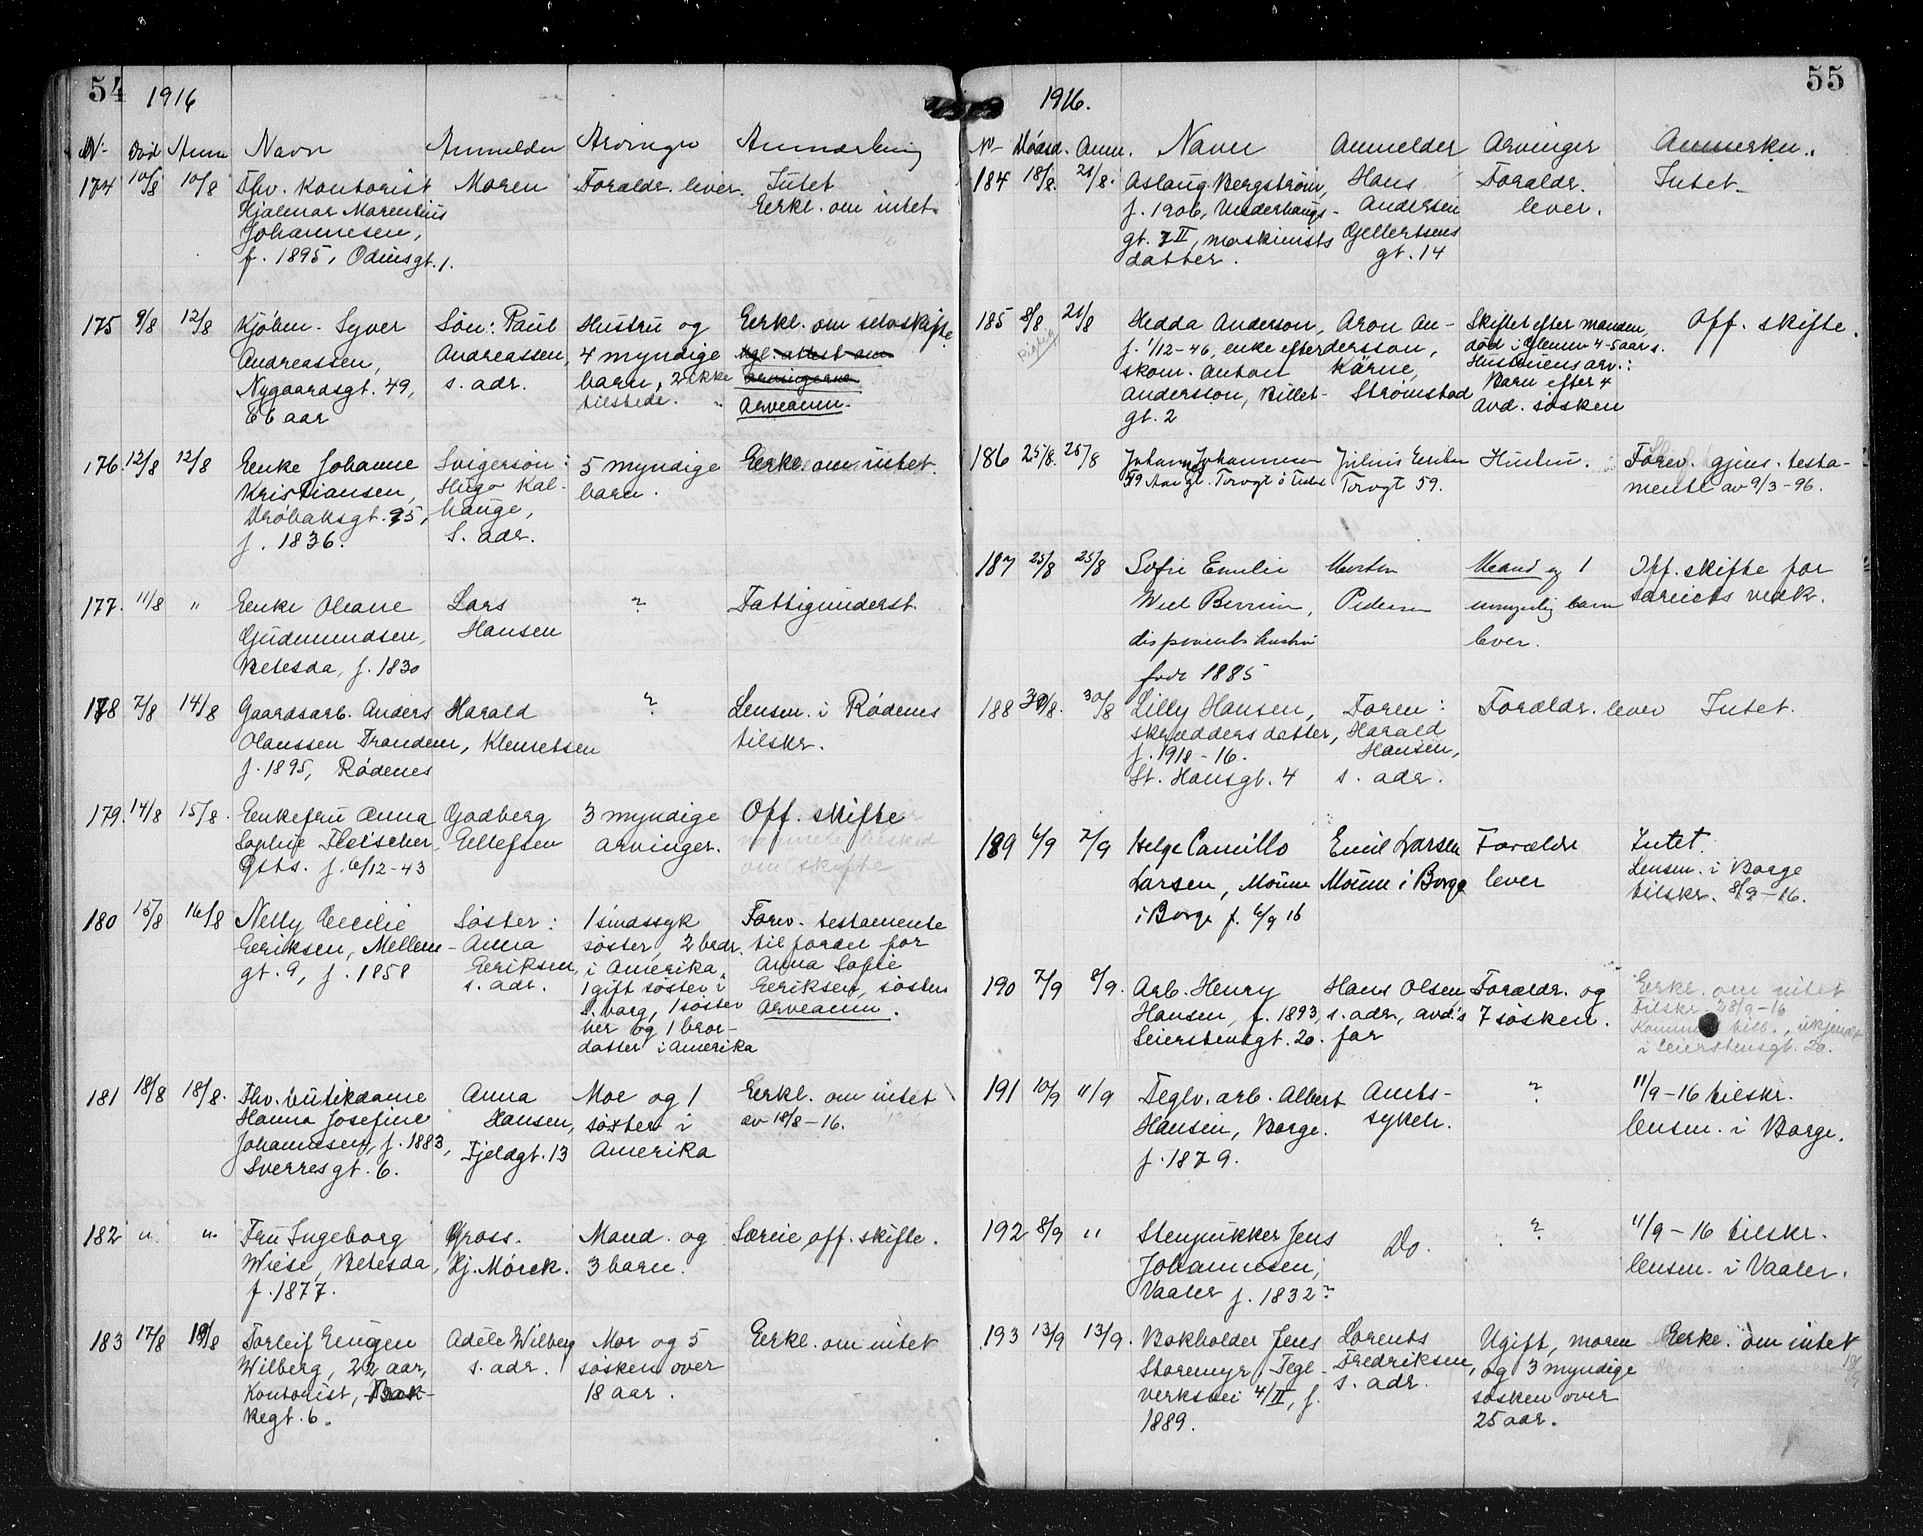 54
1916
Nr. Død Anm Navn Anmelder Arvinger Anmærkning
174 10/8 10/8 Fhv. Kontorist Moren Foraldr. lever. Intet
Hjalmar Marentius Eerkl. om intet.
Johannesen,
f. 1895, Odinsgt. 1.
175 9/8 12/8 Kjøbm. Syver Søn: Paul Hustru og Eerkl. om selvskifte
Andreassen, Andreassen, 4 myndige Mgl. attest om
Nygaardsgt. 49, s. adr. barn, 2 ikke arvingerne
66 aar tilstede. Arveanm.
176. 12/8 12/8 Enke Johanne Svigersøn: 5 myndige Eerkl. om intet.
Kristiansen, Hugo Kal- barn.
Drøbaksgt. 95, hauge,
f. 1836. s. adr.
177. 11/8 " Enke Oleane Lars ? Fattigunderst.
Gudmundsen, Hansen
Betesda, f. 1830
178 7/8 14/8 Gaardsarb. Anders Harald ? Lensm. i Rødenes
Olaussen Trandem, Klemetsen tilskr.
f. 1895, Rødenes
179. 14/8 15/8. Enkefru Anna Godberg 3 myndige Off. skifte
Sophie Fleischer, Ellefsen arvinger.
Gsts. f. 6/12-43 om skifte
180 15/8 16/8 Nelly Cecilie Søster: 1 sindssyk Forev. testamente
Eeriksen, Mellem- Anna søster, 2 brdr. til fordel for
gt. 9, f. 1858 Eeriksen, i Amerika, Anna Sofie
s. adr. 1 gift søster i Eeriksen, søster
S.borg, 1 søster Arveanm.
her og 1 bror-
datter i Amerika
181 18/8 18/8. Fhv. butikdame Anna Moe og 1 Eerkl. om intet
Hanna Josefine Hansen, søster i av 18/8-16.
Johannesen, f. 1883, Fjeldgt. 13 Amerika
Sverresgt. 6.
182 " " Fru Ingeborg Gross. Mand og Særeie off. skifte.
Wiese, Betesda, Hj. Mørck. 3 barn.
f. 1877.
183 17/8 19/8 Torleif Eugen Adéle Wilberg Mor og 5 Eerkl. om intet
Wilberg, 22 aar, s. adr. søsken over
Kontorist, Bak- 18 aar.
kegt. 6.
55
1916.
Nr. Dødsd. Anm. Navn Anmelder Arvinger Anmerkn.
184 18/8. 21/8. Aslaug Bergstrøm, Hans Foraldr. Intet
f. 1906, Underhaugs- Andersen lever.
gt. 7 II, maskinists Gellertsens
datter. gt. 14
185 8/8 21/8 Hedda Anderson, Aron An- Skiftet efter manden, Off. skifte.
f. 1/12-46, enke efter dersson, død i Glemm 4-5 aar s.
skom. Anton Kärne, Hustruens arv.:
Andersson, Billet- Strømstad Barn efter 4
gt. 2 Avd. søsken
186 25/8. 25/8 Johan Johannesen Julius Hustru. Forev. gjens. testa-
59 Aar gl. Torvgt Torvgt 59. mente av 9/3-96.
187 25/8 25/8 Sofie Emilie Morten Mand og 1 Off. skifte for
Wiel Pedersen umyndig barn særeiets vedk.
disponents hustru lever.
født 1885
188 30/8. 30/8 Lilly Hansen, Faren: Forældr. lever Intet.
skrædders datter, Harald
f. 1918-16. Hansen,
St. Hansgt. 4 s. adr.
189 6/9 7/9 Helge Camillo Emil Larsen Forældr Intet.
Larsen, Moum Moum i Borge lever Lensm. i Borge
i Borge f. 6/9 16 tilskr. 8/9-16.
190 7/9 8/9. Arb. Henry Hans Olsen, Forældr. og Eerkl. om intet
Hansen, f. 1893, s. adr., avd.s 7 søsken. Tilskr. 28/9-16
Seierstensgt. 20. far ukjendt
i Seierstensgt. 20.
191 10/9 11/9 Teglv. arb. Albert Amts- ? 11/9-16 tilskr.
Hansen, Borge. sykeh. lensm. i Borge.
f. 1879.
192 8/9 " Stenpukker Jens Do. ? 11/9-16 tilskr.
Johannesen, lensm. i Vaaler.
Vaaler f. 1832?
193 13/9 13/9. Bokholder Jens Lorents Ugift, moren Eerkl. om intet
Storemyr, Tegl- Fredriksen, og 3 myndige
verksvei 4/II, f. s. adr. søsken over
1889. 25 aar.